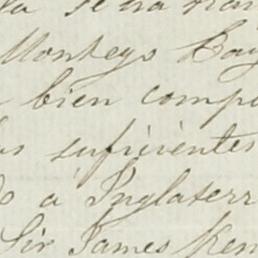 Montego Bay
bien comp
sufrientes
á Inglaterr
Sir James Ken